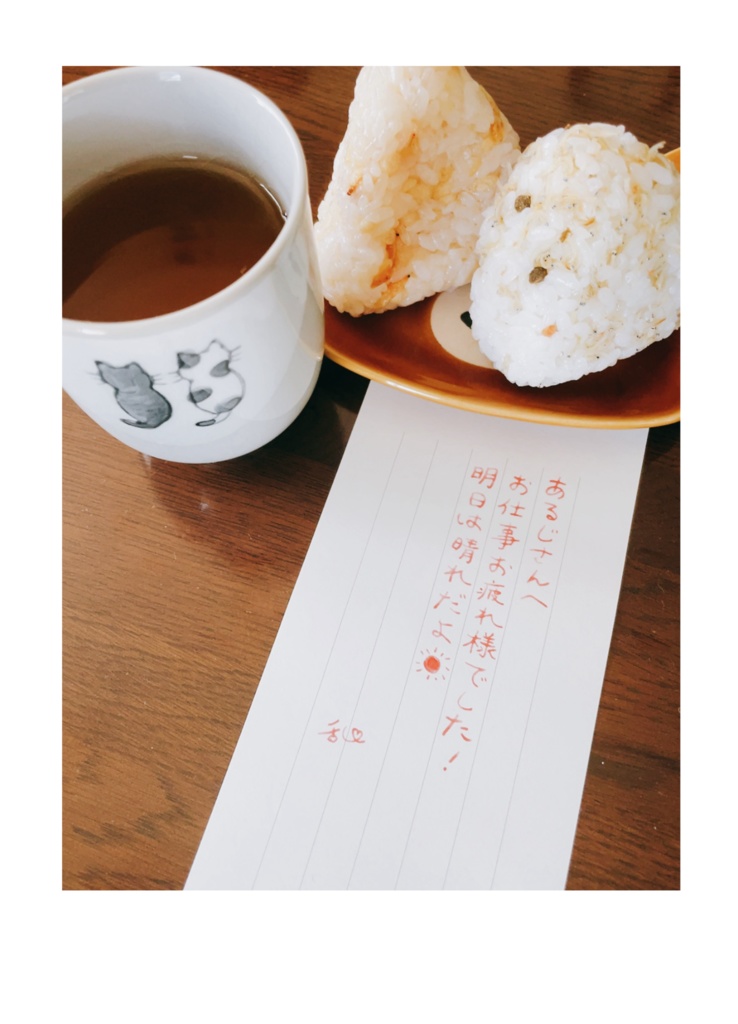 あるじさんへ
お仕事お疲れ様でした!
明日は晴れだよ
乱